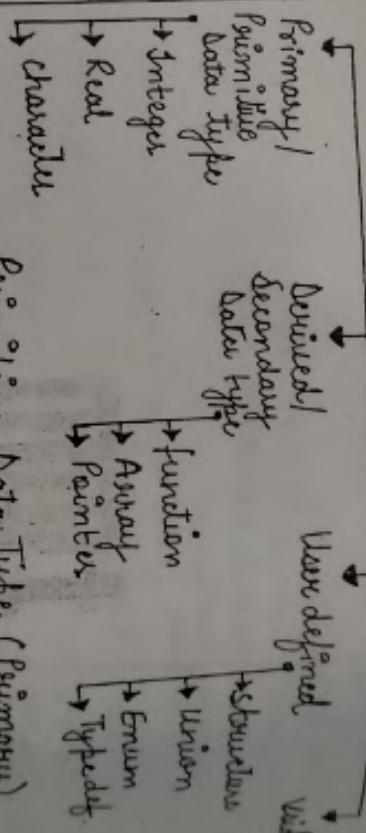 Primary/
Primitive
Data type
Integer
Real
Character
Derived/
Secondary
Data type
function
Array
Pointer
User defined
Structure
Union
Enum
Typedef.
Primitive Data Type (Primary)